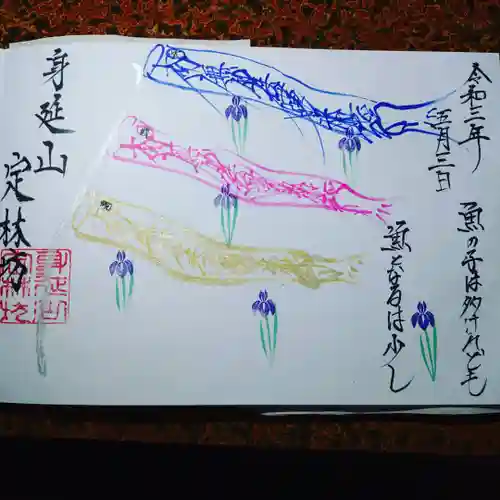 令和三年
五月三日
魚の子は多けれども
魚となるは少し
身延山
定林坊
身延山
定林坊